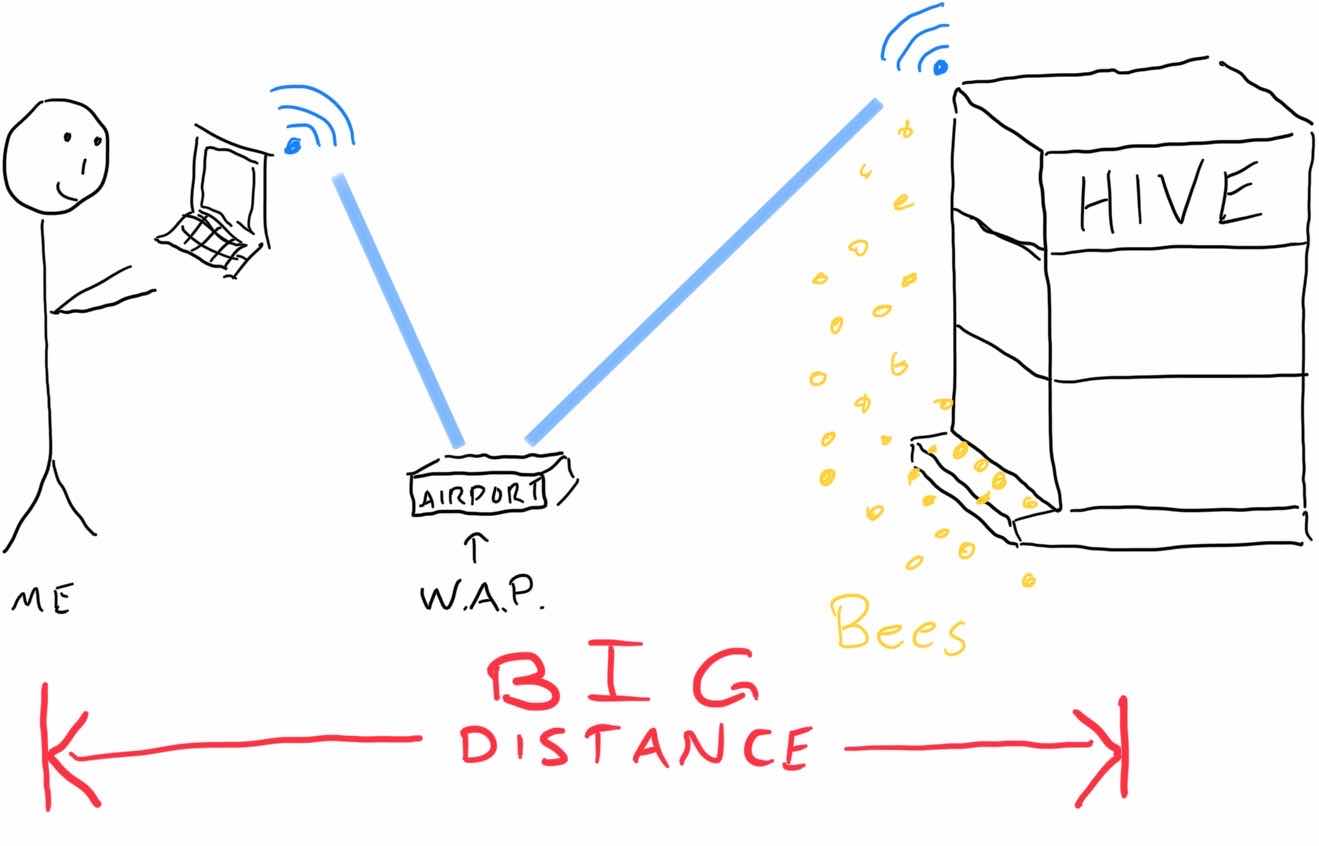 HIVE
AIRPORT
ME
W.A.P.
Bees
BIG
DISTANCE